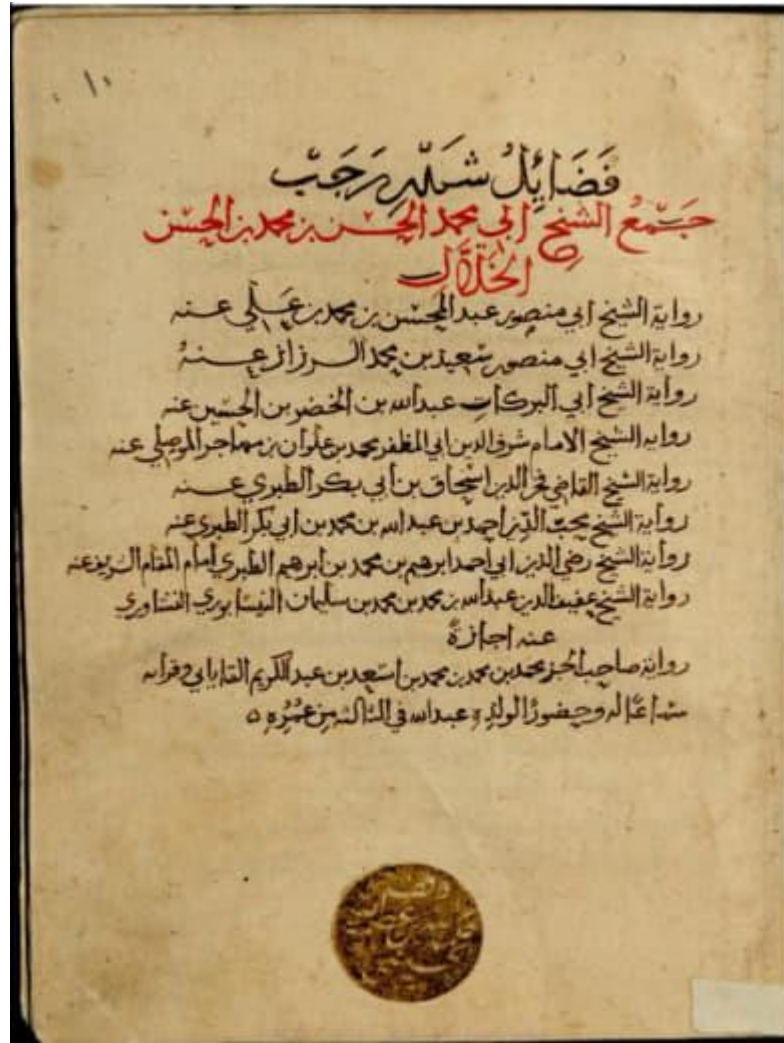 ١٠
فَضَايِلُ شَهْرِ رَجَب
جَمْعُ الشيخ ابي محمد الحسن بن محمد بن الحسن
الخلّال
رواية الشيخ ابي منصور عبد المحسن بن محمد بن علي عنه
رواية الشيخ ابي منصور سعيد بن محمد الرزاز عنه
رواية الشيخ ابي البركات عبدالله بن الخضر بن الحسين عنه
رواية الشيخ الامام شرف الدين ابي المظفر محمد بن علوان بن مهاجر الموصلي عنه
رواية الشيخ القاضي فخر الدين اسحاق بن ابي بكر الطبري عنه
رواية الشيخ محب الدين احمد بن عبدالله بن محمد بن ابي بكر الطبري عنه
رواية الشيخ رضي الدين ابي احمد ابرهيم بن محمد بن ابرهيم الطبري امام المقام الشريف عنه
رواية الشيخ عفيف الدين عبدالله بن محمد بن محمد بن سليمان النيسابوري النشاوري
عنه اجازةً
رواية صاحب الجز محمد بن محمد بن محمد بن اسعد بن عبد الكريم القاياتي وقراته
سماعًا له وحضورًا لولدهِ عبدالله في الثالثه من عُمُرِهِ ه